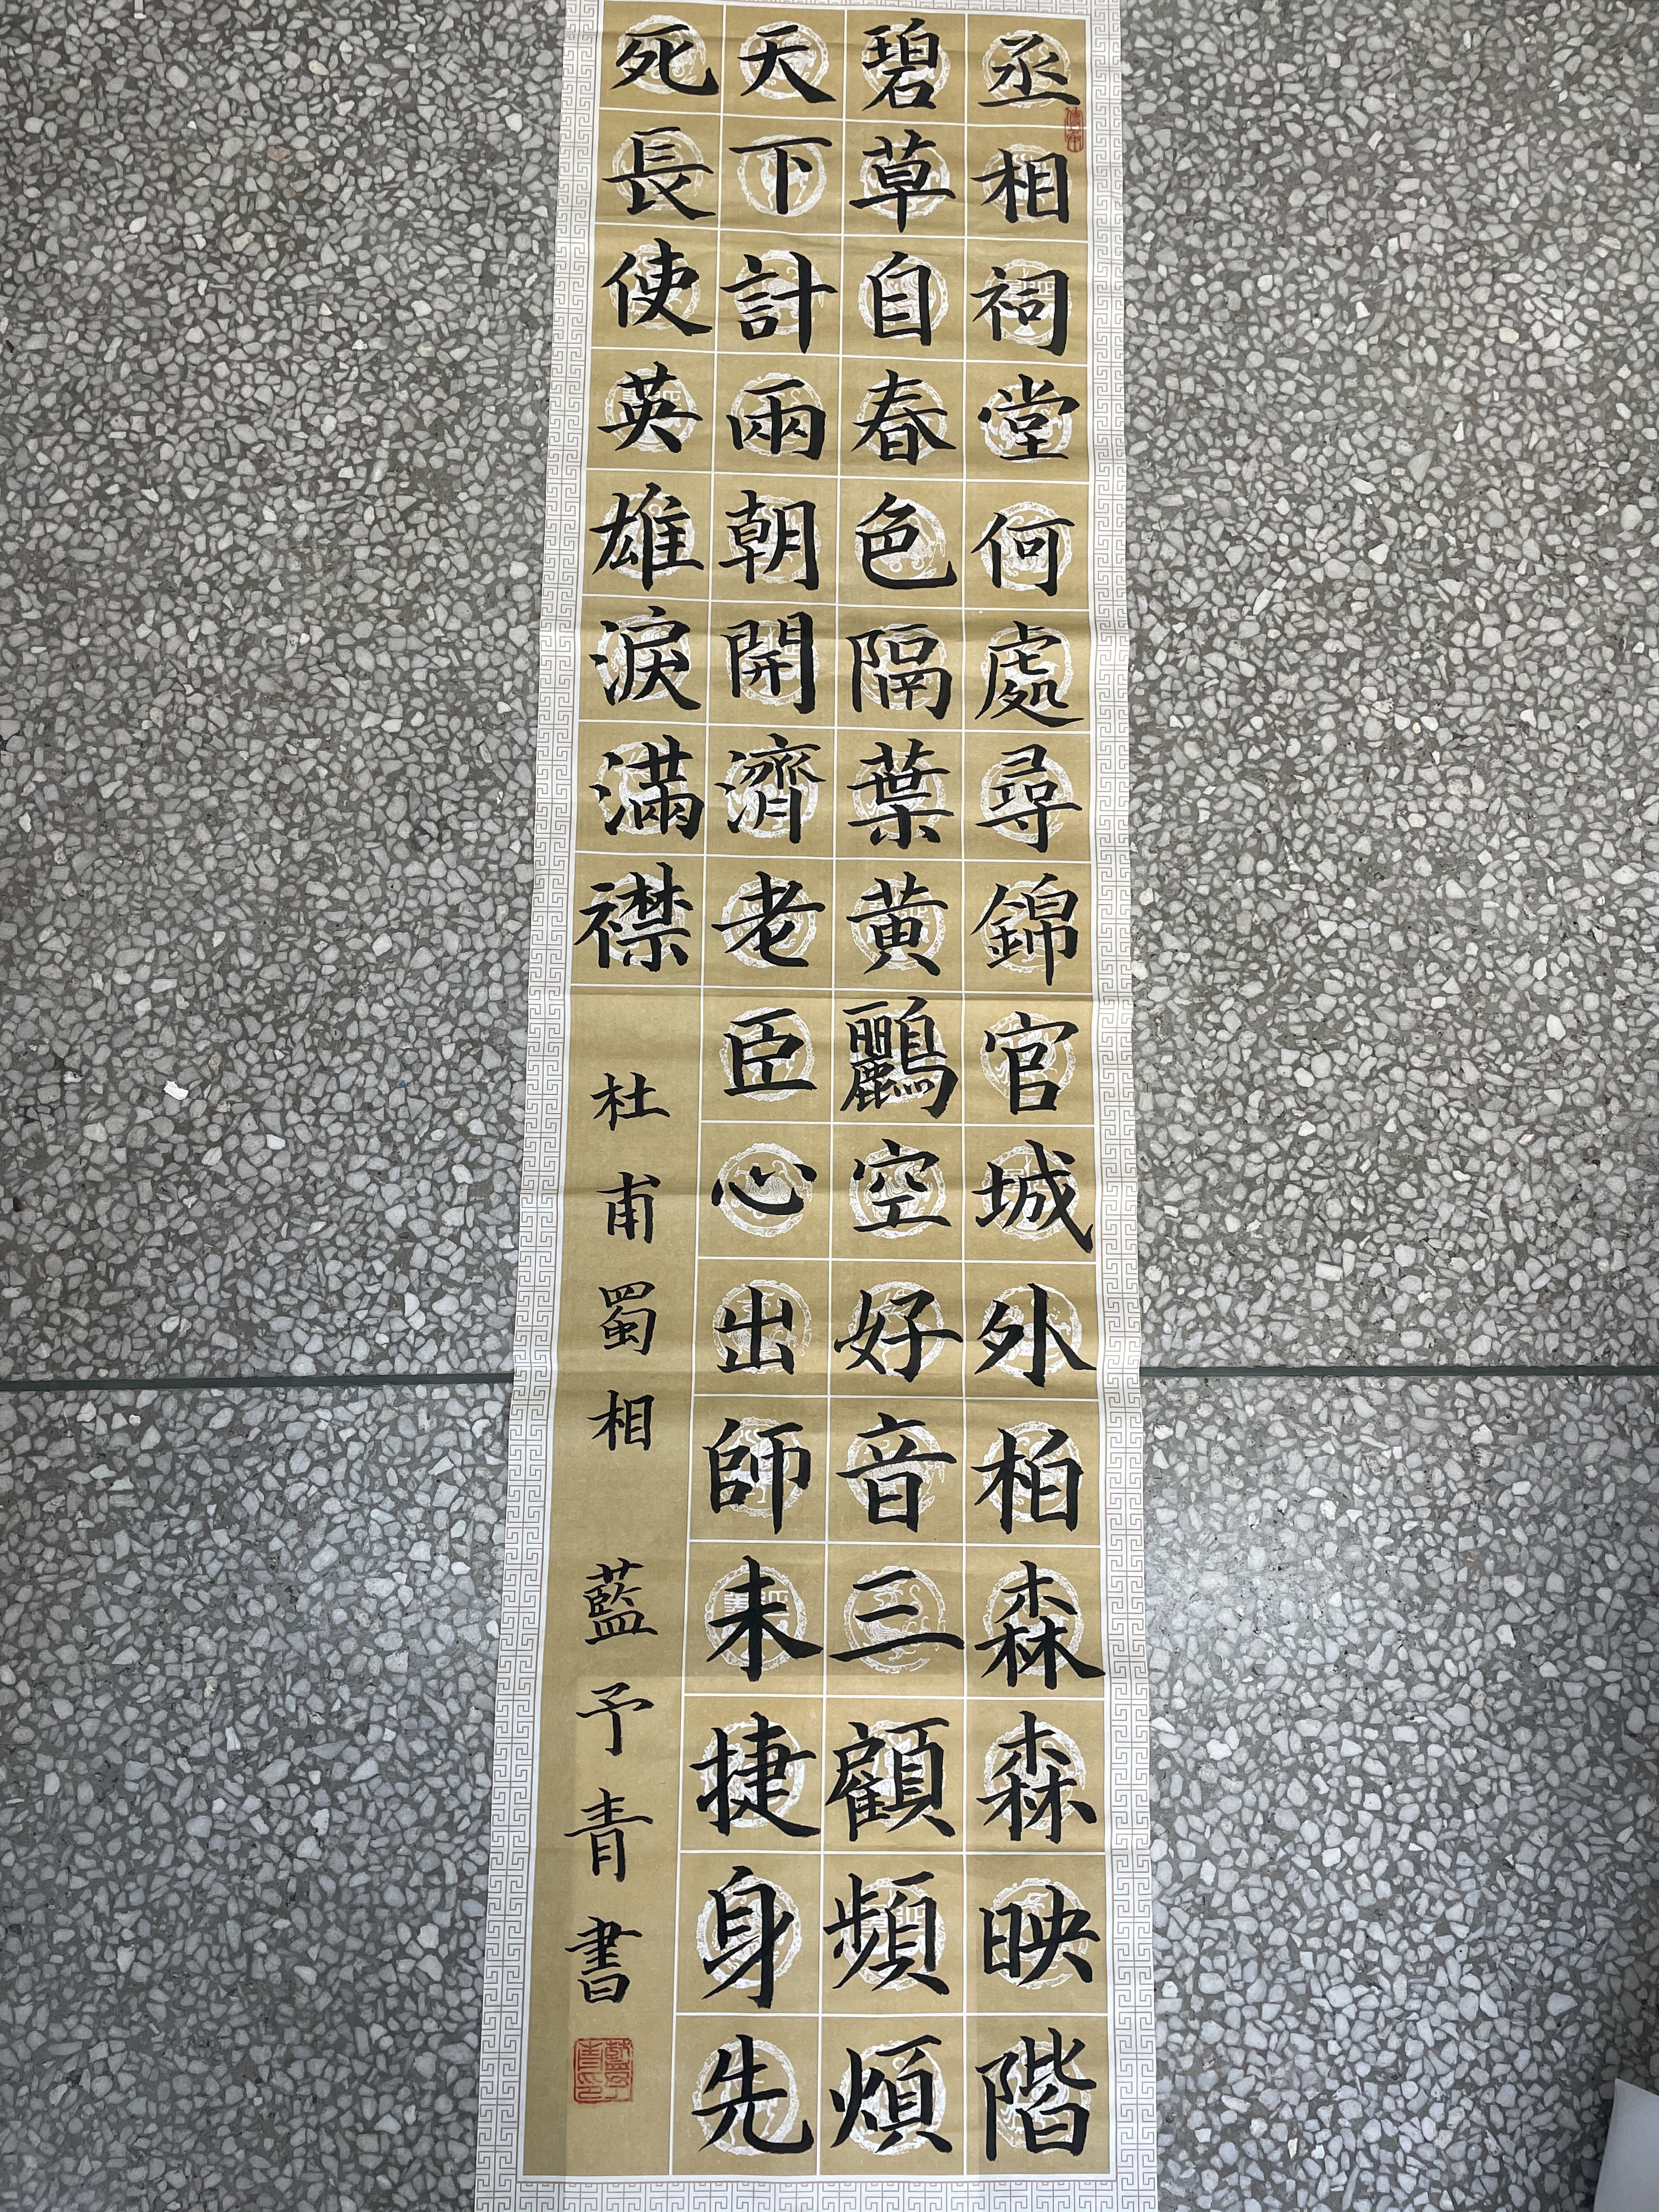 丞相祠堂何處尋錦官城外柏森森映階
碧草自春色隔葉黃鸝空好音三顧頻煩
天下計兩朝開濟老臣心出師未捷身先
死長使英雄淚滿襟
杜甫蜀相 藍予青書